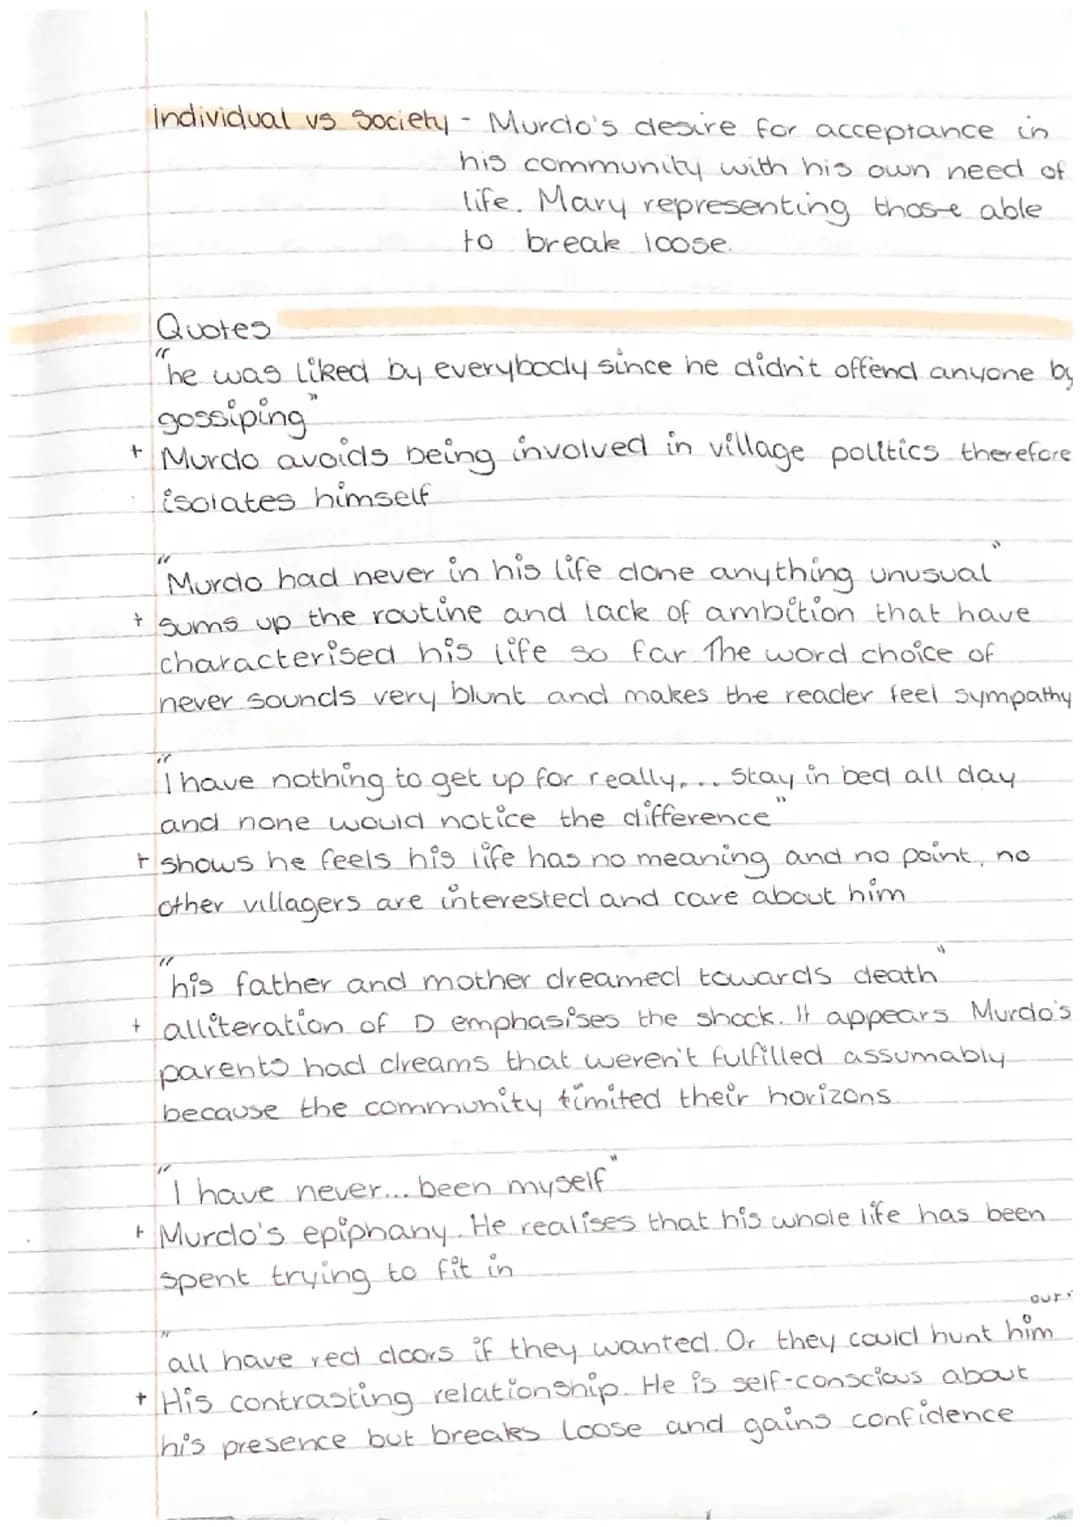 Individual vs Society - Murdo's desire for acceptance in
his community with his own need of
life. Mary representing those able
to break loose.
Quotes
"he was liked by everybody since he didn't offend anyone by
gossiping"
+ Murdo avoids being involved in village politics therefore
isolates himself
"Murdo had never in his life done anything unusual"
+ sums up the routine and lack of ambition that have
characterised his life so far. The word choice of
never sounds very blunt and makes the reader feel sympathy
"I have nothing to get up for really,... stay in bed all day
and none would notice the difference"
+ shows he feels his life has no meaning and no point, no
other villagers are interested and care about him
"his father and mother dreamed towards death"
+ alliteration of D emphasises the shock. It appears Murdo's
parents had dreams that weren't fulfilled assumably
because the community limited their horizons.
"I have never... been myself"
+ Murdo's epiphany. He realises that his whole life has been
spent trying to fit in
out"
"all have red doors if they wanted. Or they could hunt him
+ His contrasting relationship. He is self-conscious about
his presence but breaks loose and gains confidence